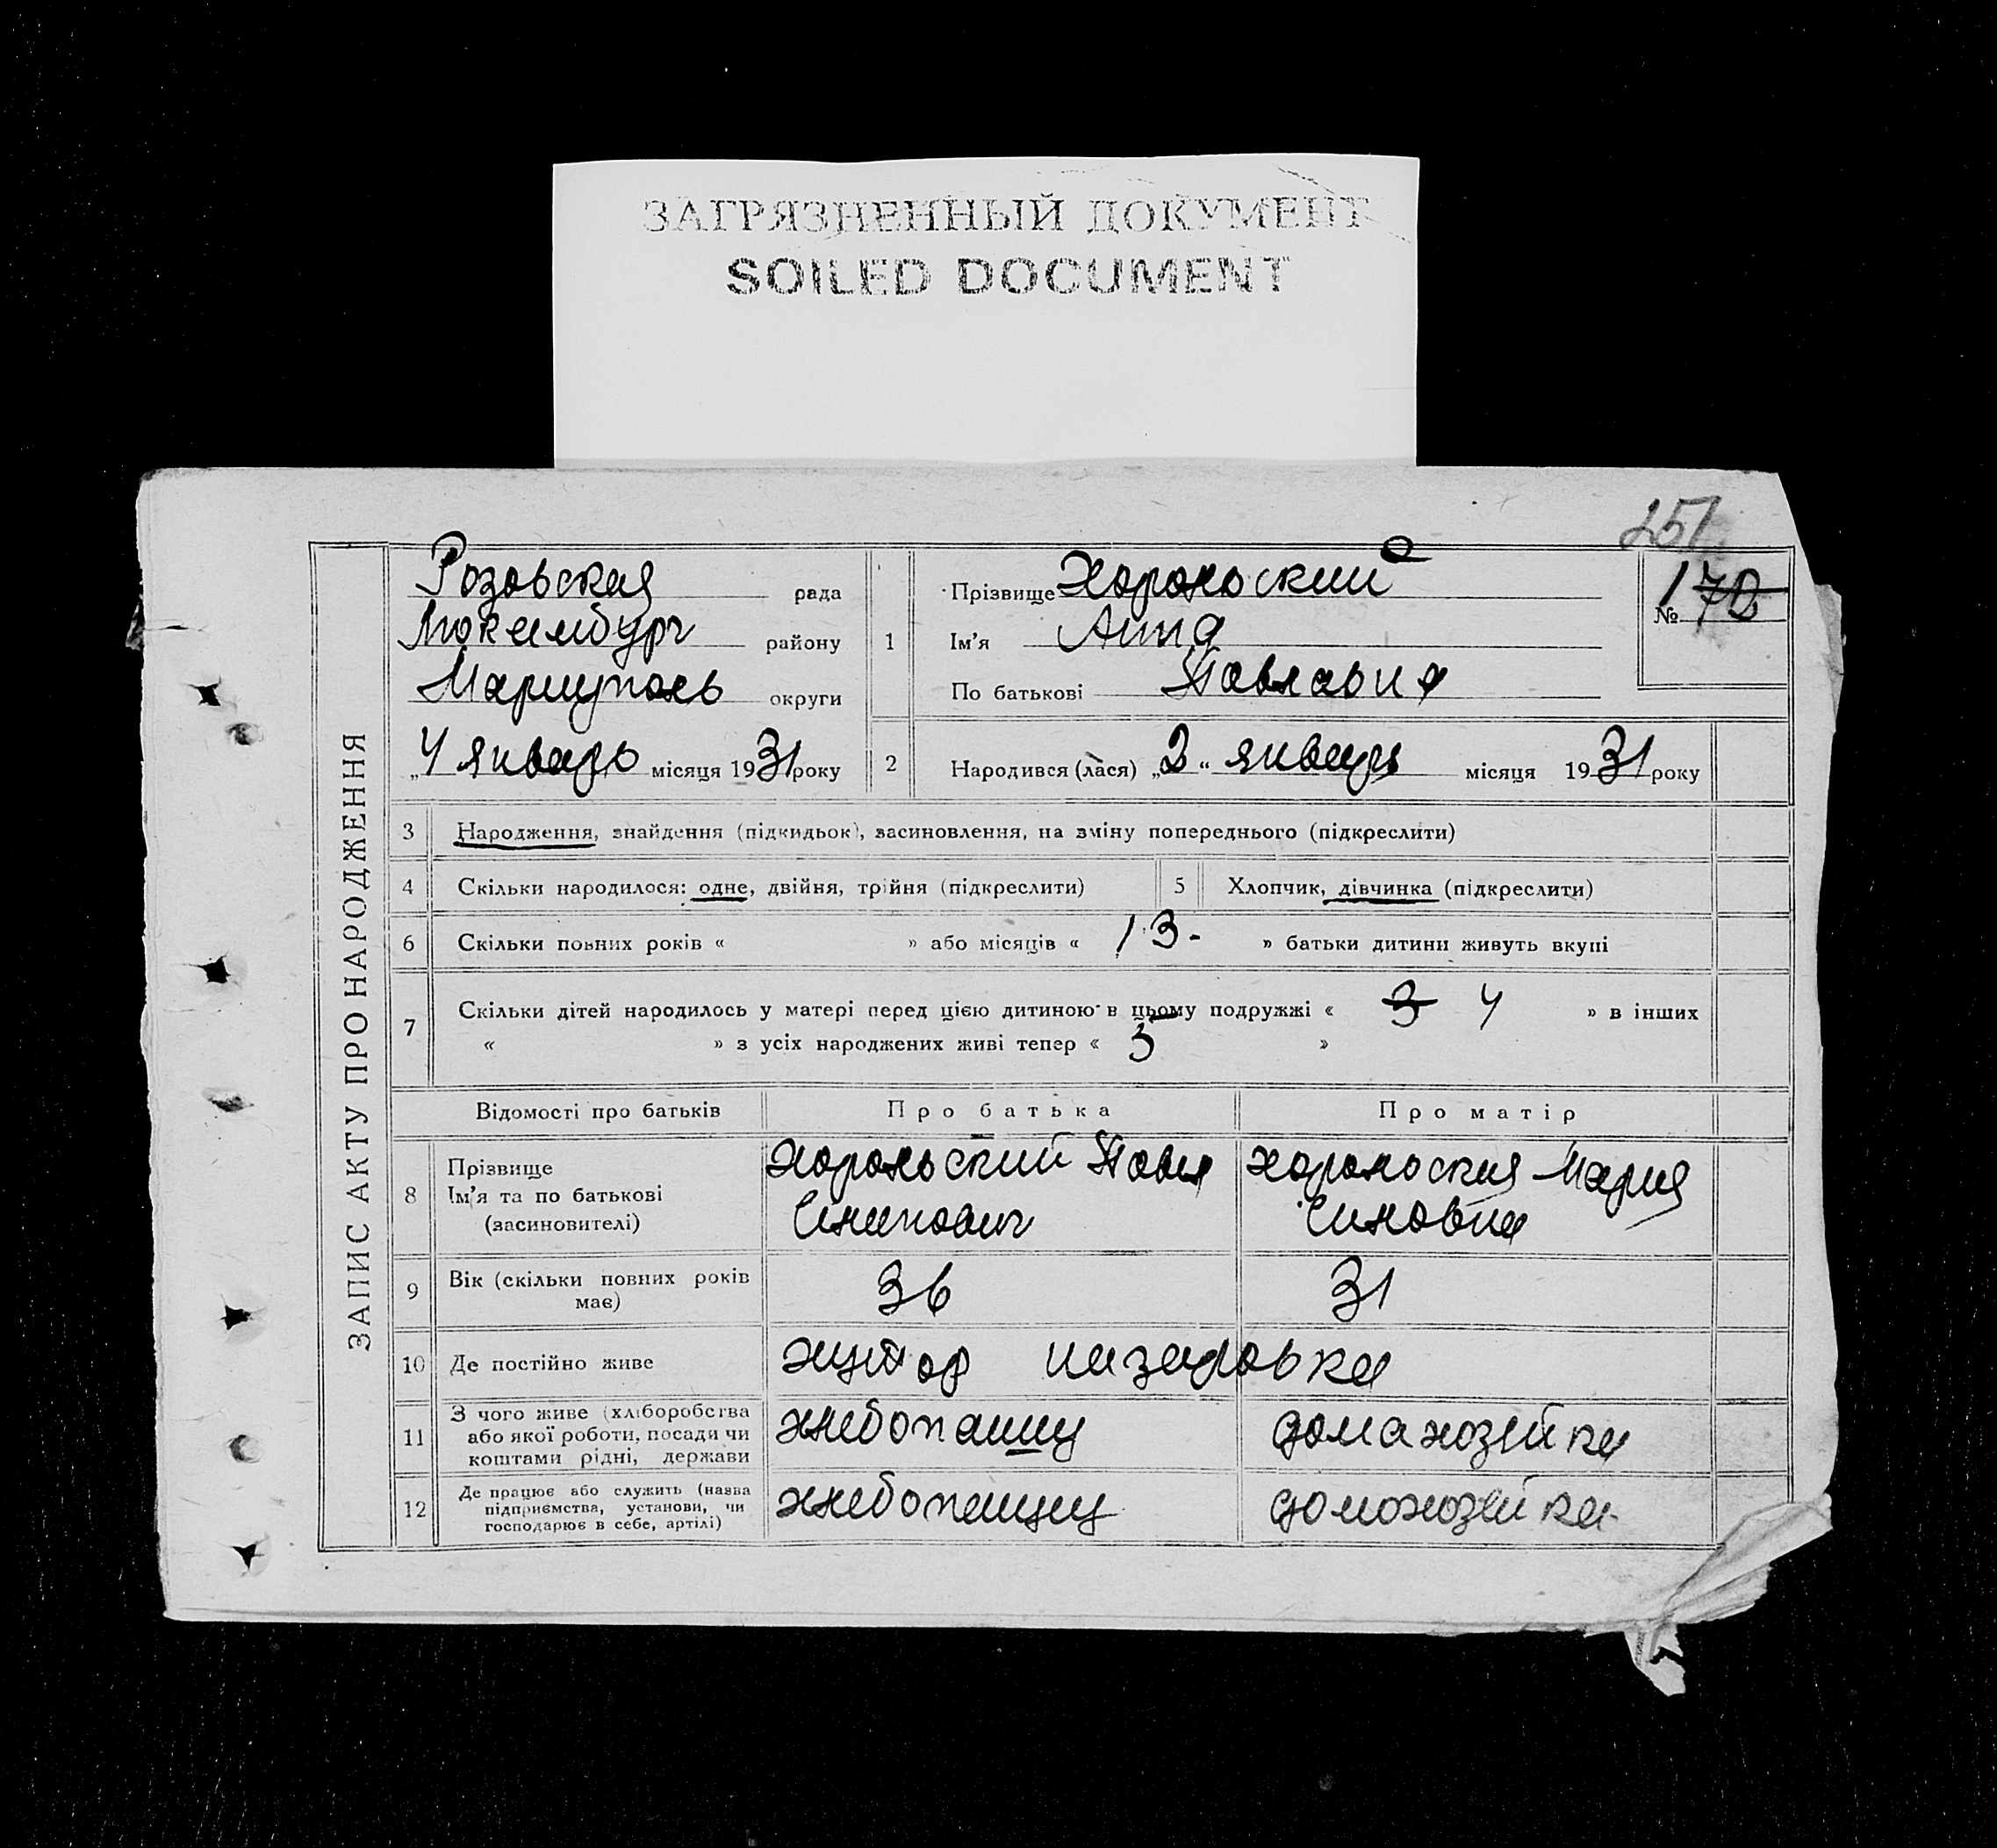 ЗАГРЯЗНЕННЫЙ ДОКУМЕНТ
SOILED DOCUMENT
251
ЗАПИС АКТУ ПРО НАРОДЖЕННЯ
Розовская рада
району
Мариуполь округи
„4 январь місяця 1931 року
1
Прізвище Хорольский
Ім'я Анна
По батькові Павловна
№ 1 70
2 Народився (лася) „2“ январь місяця 1931 року
3 Народження, знайдення (підкидьок), засиновлення, на зміну попереднього (підкреслити)
4 Скільки народилося: одне, двійня, трійня (підкреслити) 5 Хлопчик, дівчинка (підкреслити)
6 Скільки повних років « » або місяців « 13 - » батьки дитини живуть вкупі
7 Скільки дітей народилось у матері перед цією дитиною в цьому подружжі « 3 4 » в інших
« » з усіх народжених живі тепер « »
Відомості про батьків Про батька Про матір
8 Прізвище Ім'я та по батькові (засиновителі) Хорольский Павел Хорольская Мария
9 Вік (скільки повних років має) 36 31
10 Де постійно живе хутор назаровка
11 З чого живе (хліборобства або якої роботи, посади чи коштами рідні, держави хлебопашц домахозяйка
12 Де працює або служить (назва підприємства, установи, чи господарює в себе, артілі) хлебопашц домохозяйка